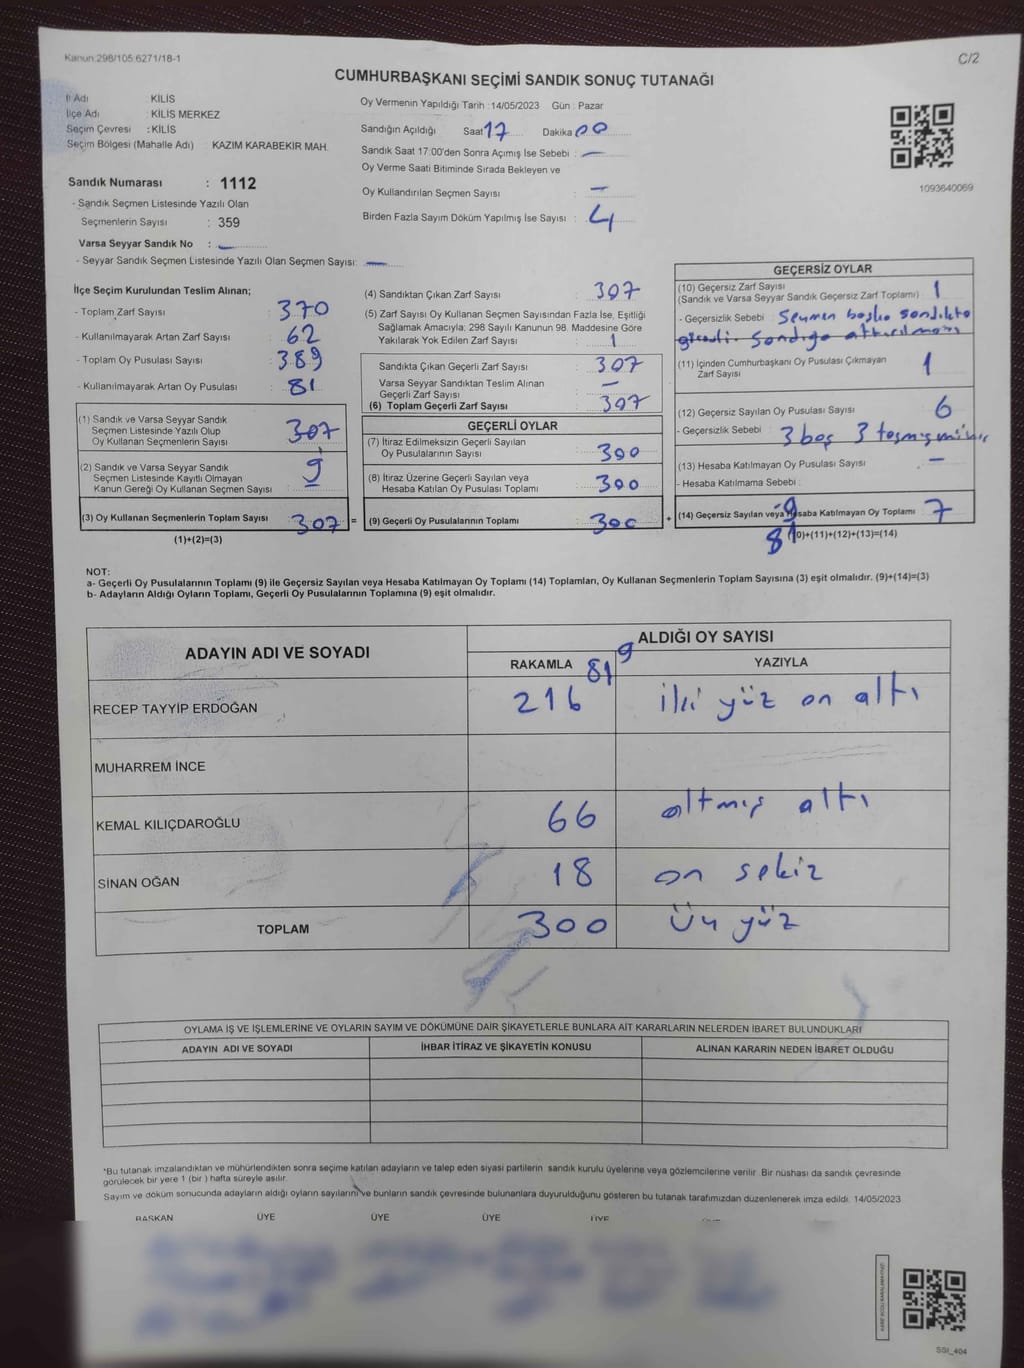 Kanun:298/105:6271/18-1
C/2
CUMHURBAŞKANI SEÇİMİ SANDIK SONUÇ TUTANAĞI
İl Adı : KİLİS
İlçe Adı : KİLİS MERKEZ
Seçim Çevresi : KİLİS
Seçim Bölgesi (Mahalle Adı) KAZIM KARABEKİR MAH.
Sandık Numarası : 1112
- Sandık Seçmen Listesinde Yazılı Olan
Seçmenlerin Sayısı : 359
Varsa Seyyar Sandık No :
- Seyyar Sandık Seçmen Listesinde Yazılı Olan Seçmen Sayısı:
Oy Vermenin Yapıldığı Tarih :14/05/2023 Gün : Pazar
Sandığın Açıldığı Saat 17 Dakika 00
Sandık Saat 17:00'den Sonra Açımış İse Sebebi : —
Oy Verme Saati Bitiminde Sırada Bekleyen ve
Oy Kullandırılan Seçmen Sayısı : —
Birden Fazla Sayım Döküm Yapılmış İse Sayısı : 4
1093640069
İlçe Seçim Kurulundan Teslim Alınan;
- Toplam Zarf Sayısı : 370
- Kullanılmayarak Artan Zarf Sayısı 62
- Toplam Oy Pusulası Sayısı : 389
- Kullanılmayarak Artan Oy Pusulası 81
(1) Sandık ve Varsa Seyyar Sandık
Seçmen Listesinde Yazılı Olup
Oy Kullanan Seçmenlerin Sayısı : 307
(2) Sandık ve Varsa Seyyar Sandık
Seçmen Listesinde Kayıtlı Olmayan
Kanun Gereği Oy Kullanan Seçmen Sayısı :
(3) Oy Kullanan Seçmenlerin Toplam Sayısı : 307 =
(1)+(2)=(3)
(4) Sandıktan Çıkan Zarf Sayısı : 307
(5) Zarf Sayısı Oy Kullanan Seçmen Sayısından Fazla İse, Eşitliği
Sağlamak Amacıyla; 298 Sayılı Kanunun 98. Maddesine Göre
Yakılarak Yok Edilen Zarf Sayısı : 1
Sandıkta Çıkan Geçerli Zarf Sayısı : 307
Varsa Seyyar Sandıktan Teslim Alınan
Geçerli Zarf Sayısı : —
(6) Toplam Geçerli Zarf Sayısı : 307
GEÇERLİ OYLAR
(7) İtiraz Edilmeksizin Geçerli Sayılan
Oy Pusulalarının Sayısı : 300
(8) İtiraz Üzerine Geçerli Sayılan veya
Hesaba Katılan Oy Pusulası Toplamı : 300
(9) Geçerli Oy Pusulalarının Toplamı : 300 +
GEÇERSİZ OYLAR
(10) Geçersiz Zarf Sayısı : 1
(Sandık ve Varsa Seyyar Sandık Geçersiz Zarf Toplamı)
- Geçersizlik Sebebi : Seçmen başka sandıkta
(11) İçinden Cumhurbaşkanı Oy Pusulası Çıkmayan
Zarf Sayısı : 1
(12) Geçersiz Sayılan Oy Pusulası Sayısı : 6
- Geçersizlik Sebebi : 3 boş 3
(13) Hesaba Katılmayan Oy Pusulası Sayısı : —
- Hesaba Katılmama Sebebi :
(14) Geçersiz Sayılan veya Hesaba Katılmayan Oy Toplamı : 7
81 (10)+(11)+(12)+(13)=(14)
NOT:
a- Geçerli Oy Pusulalarının Toplamı (9) ile Geçersiz Sayılan veya Hesaba Katılmayan Oy Toplamı (14) Toplamları, Oy Kullanan Seçmenlerin Toplam Sayısına (3) eşit olmalıdır. (9)+(14)=(3)
b- Adayların Aldığı Oyların Toplamı, Geçerli Oy Pusulalarının Toplamına (9) eşit olmalıdır.
ADAYIN ADI VE SOYADI
ALDIĞI OY SAYISI
RAKAMLA 81 9 YAZIYLA
RECEP TAYYİP ERDOĞAN 216 iki yüz on altı
MUHARREM İNCE
KEMAL KILIÇDAROĞLU 66 altmış altı
SİNAN OĞAN 18 on sekiz
TOPLAM 300 Üç yüz
OYLAMA İŞ VE İŞLEMLERİNE VE OYLARIN SAYIM VE DÖKÜMÜNE DAİR ŞİKAYETLERLE BUNLARA AİT KARARLARIN NELERDEN İBARET BULUNDUKLARI
ADAYIN ADI VE SOYADI İHBAR İTİRAZ VE ŞİKAYETİN KONUSU ALINAN KARARIN NEDEN İBARET OLDUĞU
*Bu tutanak imzalandıktan ve mühürlendikten sonra seçime katılan adayların ve talep eden siyasi partilerin sandık kurulu üyelerine veya gözlemcilerine verilir. Bir nüshası da sandık çevresinde
görülecek bir yere 1 (bir ) hafta süreyle asılır.
Sayım ve döküm sonucunda adayların aldığı oyların sayılarını ve bunların sandık çevresinde bulunanlara duyurulduğunu gösteren bu tutanak tarafımızdan düzenlenerek imza edildi. 14/05/2023
BAŞKAN ÜYE ÜYE ÜYE ÜYE
SSI_404